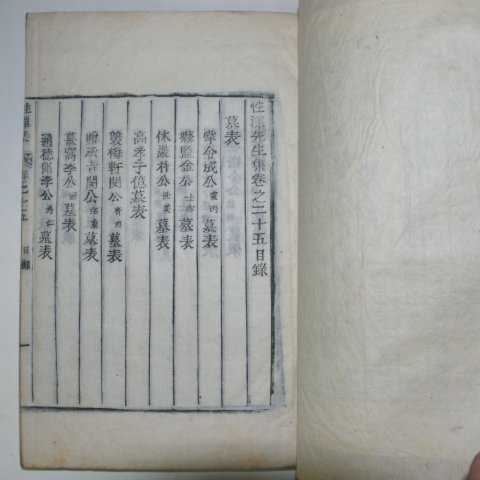 性潭先生集卷之二十五目錄
墓表
掌令成公震丙墓表
縣監金公墓表
休巖朴公世英墓表
高孝子億墓表
雙梅軒閔公墓表
贈承旨閔公重墓表
慕窩李公墓表
通德郞李公秀仁墓表
性潭集 卷之二十五 目錄